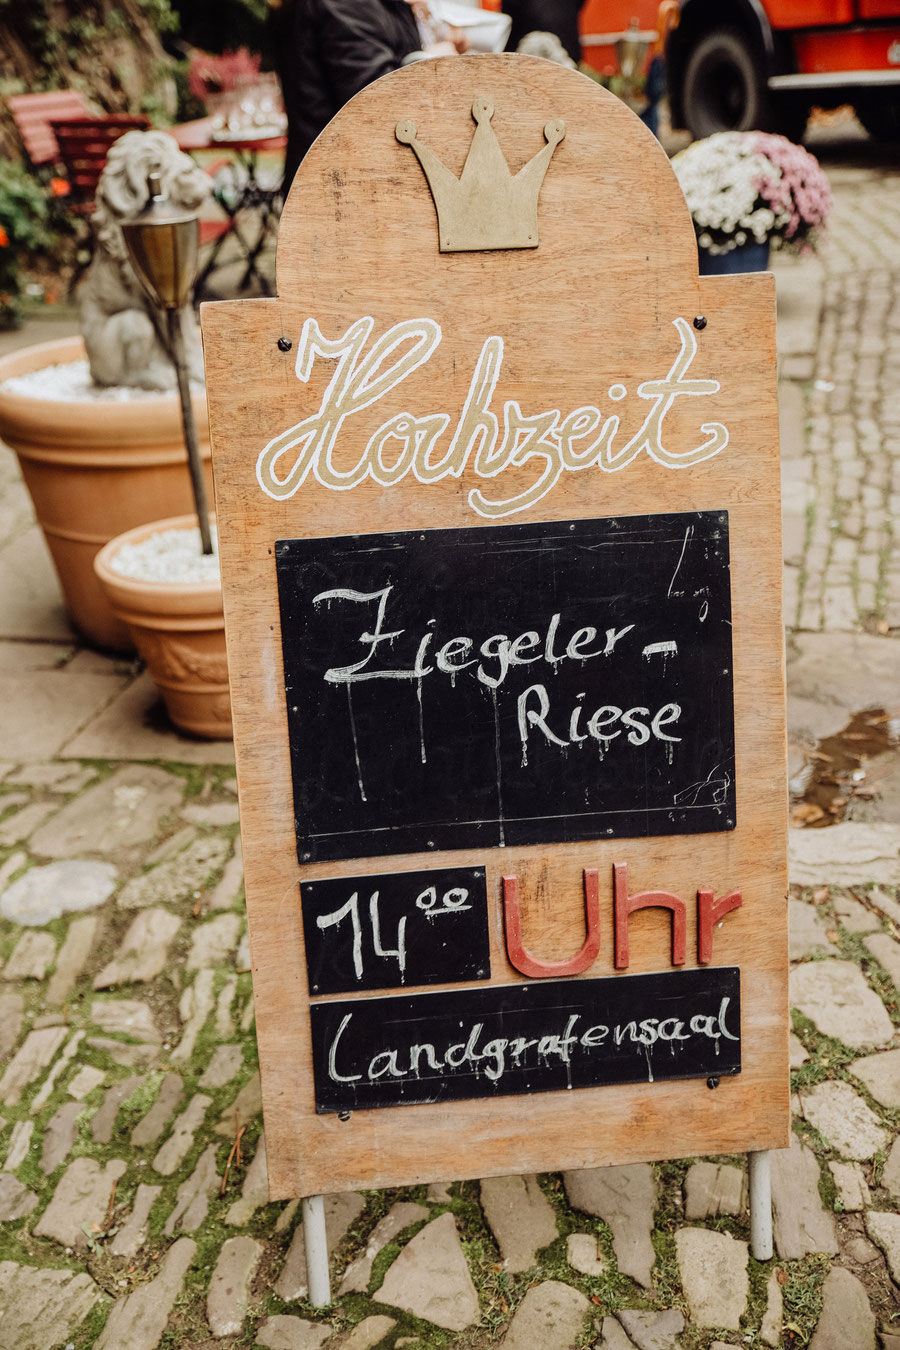 Hochzeit
Ziegeler-
Riese
14⁰⁰ Uhr
Landgrafensaal